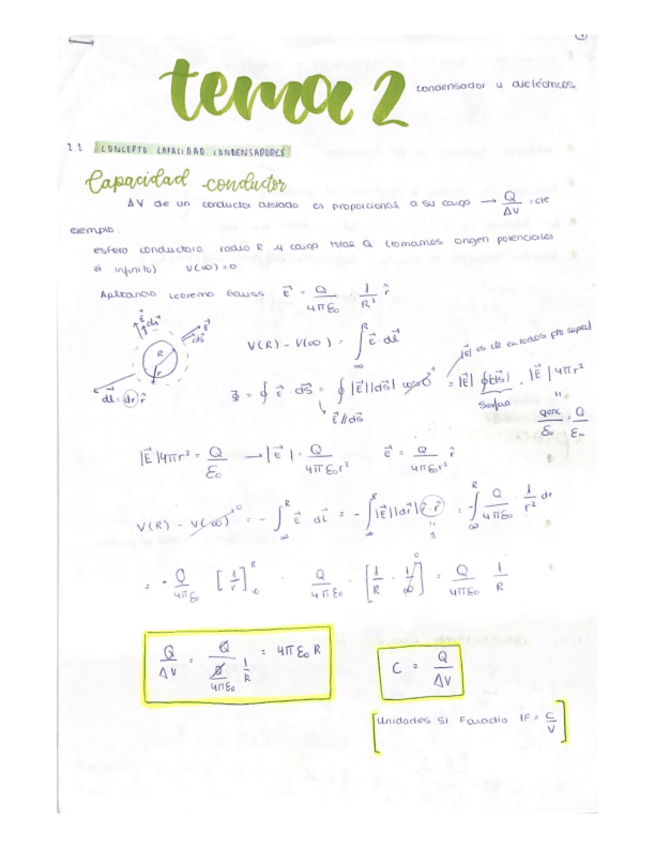 tema 2 condensador y dieléctricos
1.1 CONCEPTO CAPACIDAD CONDENSADORES
Capacidad - conductor
ΔV de un conductor aislado es proporcional a su carga → Q/ΔV = cte
ejemplo:
esfera conductora radio R y carga total Q (tomamos origen potenciales
el infinito) V(∞) = 0
Aplicando teorema Gauss E⃗ = Q/4πε₀ · 1/R² r̂
E⃗ ds⃗ E⃗ ds⃗
R
r
dl⃗ = dr r̂
V(R) - V(∞) = ∫_∞^R E⃗ · dl⃗
|E| es cte en todos
Φ = ∮ E⃗ · ds⃗ = ∮ |E⃗||ds⃗| cos 0 = |E⃗| ∮|ds⃗| = |E⃗| 4πr²
E⃗ // ds⃗
=
Q/ε₀
|E⃗| 4πr² = Q/ε₀ → |E⃗| = Q/4πε₀r² E⃗ = Q/4πε₀r² r̂
V(R) - V(∞)⁰ = - ∫_∞^R E⃗ dl⃗ = - ∫_∞^R |E⃗||dr⃗| r̂·r̂ = - ∫_∞^R Q/4πε₀ · 1/r² dr
1
= - Q/4πε₀ [1/r]_∞^R = Q/4πε₀ · [1/R - 1/∞] = Q/4πε₀ 1/R
Q/ΔV = Q/(Q/4πε₀ 1/R) = 4πε₀R
C = Q/ΔV
[Unidades SI Faradio 1F = C/V]